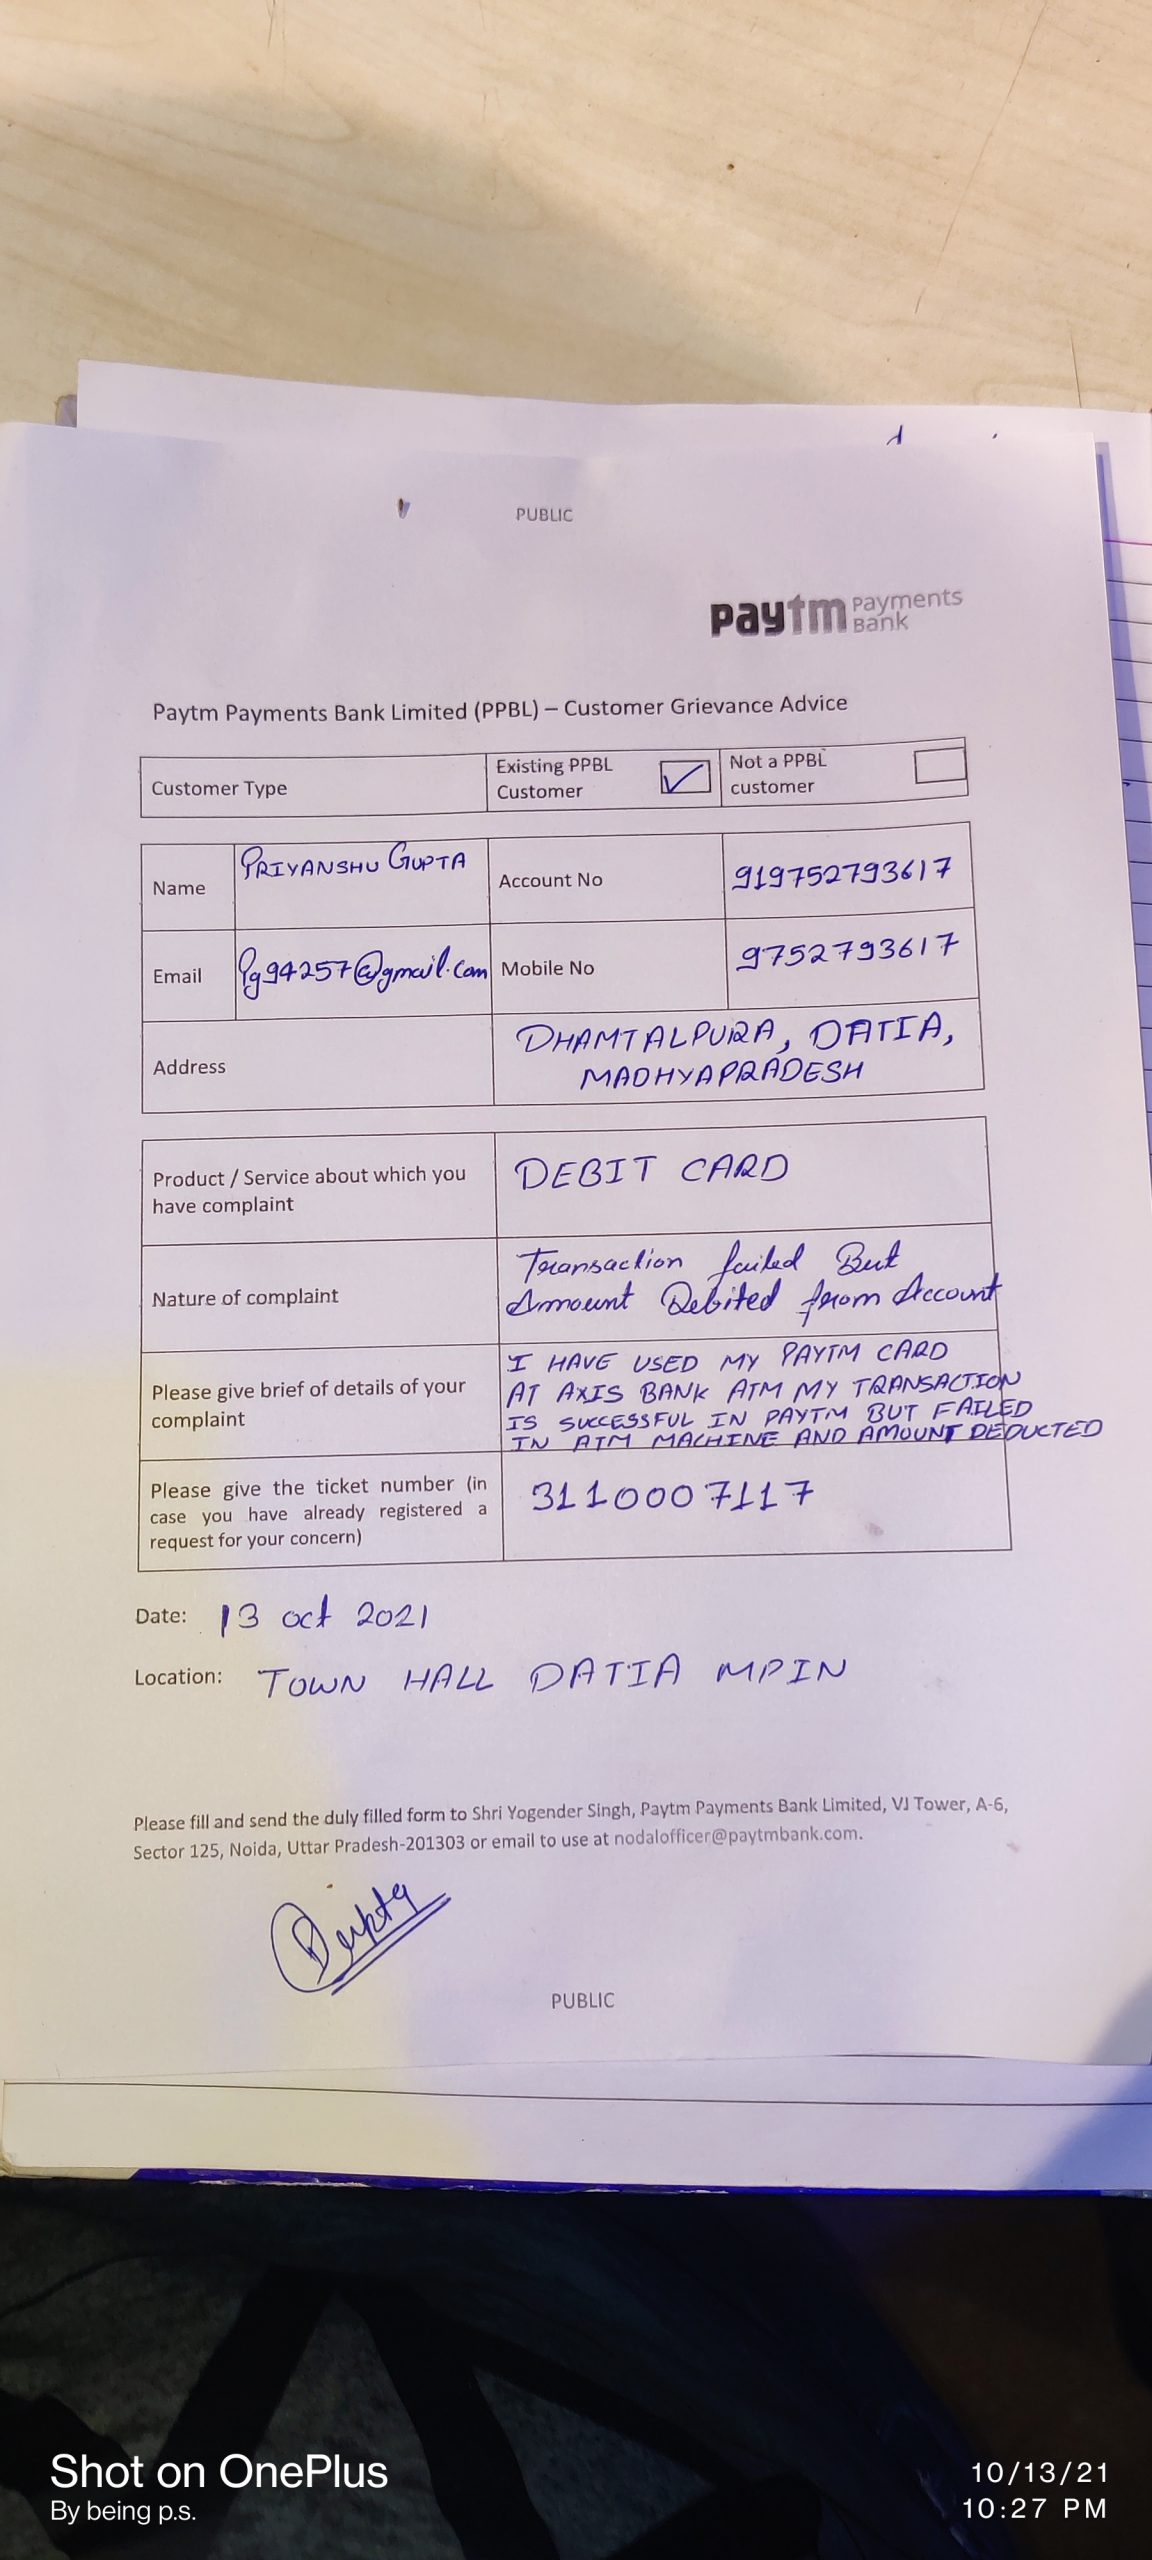 PUBLIC
paytm Payments
Bank
Paytm Payments Bank Limited (PPBL) – Customer Grievance Advice
Customer Type
Existing PPBL
Customer
Not a PPBL
customer
Name
PRIYANSHU GUPTA
Account No
919752793617
Email
Pg94257@gmail.com
Mobile No
9752793617
Address
DHAMTALPURA, DATIA,
MADHYAPRADESH
Product / Service about which you
have complaint
DEBIT CARD
Nature of complaint
Transaction failed But
Amount Debited from Account
Please give brief of details of your
complaint
I HAVE USED MY PAYTM CARD
AT AXIS BANK ATM MY TRANSACTION
IS SUCCESSFUL IN PAYTM BUT FAILED
IN ATM MACHINE AND AMOUNT DEDUCTED
Please give the ticket number (in
case you have already registered a
request for your concern)
3110007117
Date: 13 oct 2021
Location: TOWN HALL DATIA MPIN
Please fill and send the duly filled form to Shri Yogender Singh, Paytm Payments Bank Limited, VJ Tower, A-6,
Sector 125, Noida, Uttar Pradesh-201303 or email to use at nodalofficer@paytmbank.com.
PUBLIC
Shot on OnePlus
By being p.s.
10/13/21
10:27 PM